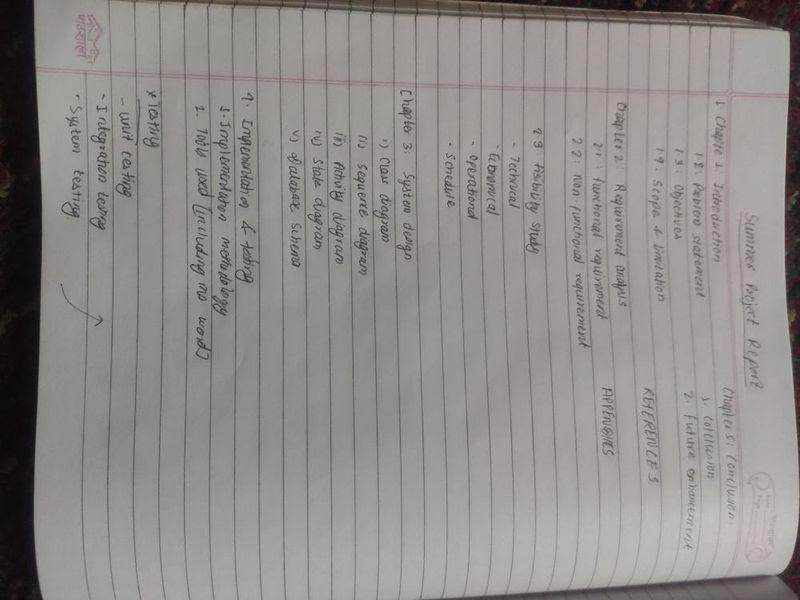 Summer Project Report
1. Chapte 1: Introduction
1.2: Problem statement
1.3: Objectives
1.4: Scope & limitation
Chapter 2: Requirement analysis
2.1: functional requirement
2.2: Non-functional requirement
2.3 fisibility study
- Technical
- Economical
- Operational
- Schedule
Chapter 3: System design
i) Class diagram
ii) Sequence diagram
iii) Activity diagram
iv) State diagram
v) Database Schema
4. Implementation & testing
1. Implementation methodology
2. Tools used [including ms word]
* Testing
- unit testing
- Integration testing
- System testing
Chapter 5: Conclusion
1. Colclusion
2. Future enhancement
REFERENCES
APPENDICES
पाठशाला